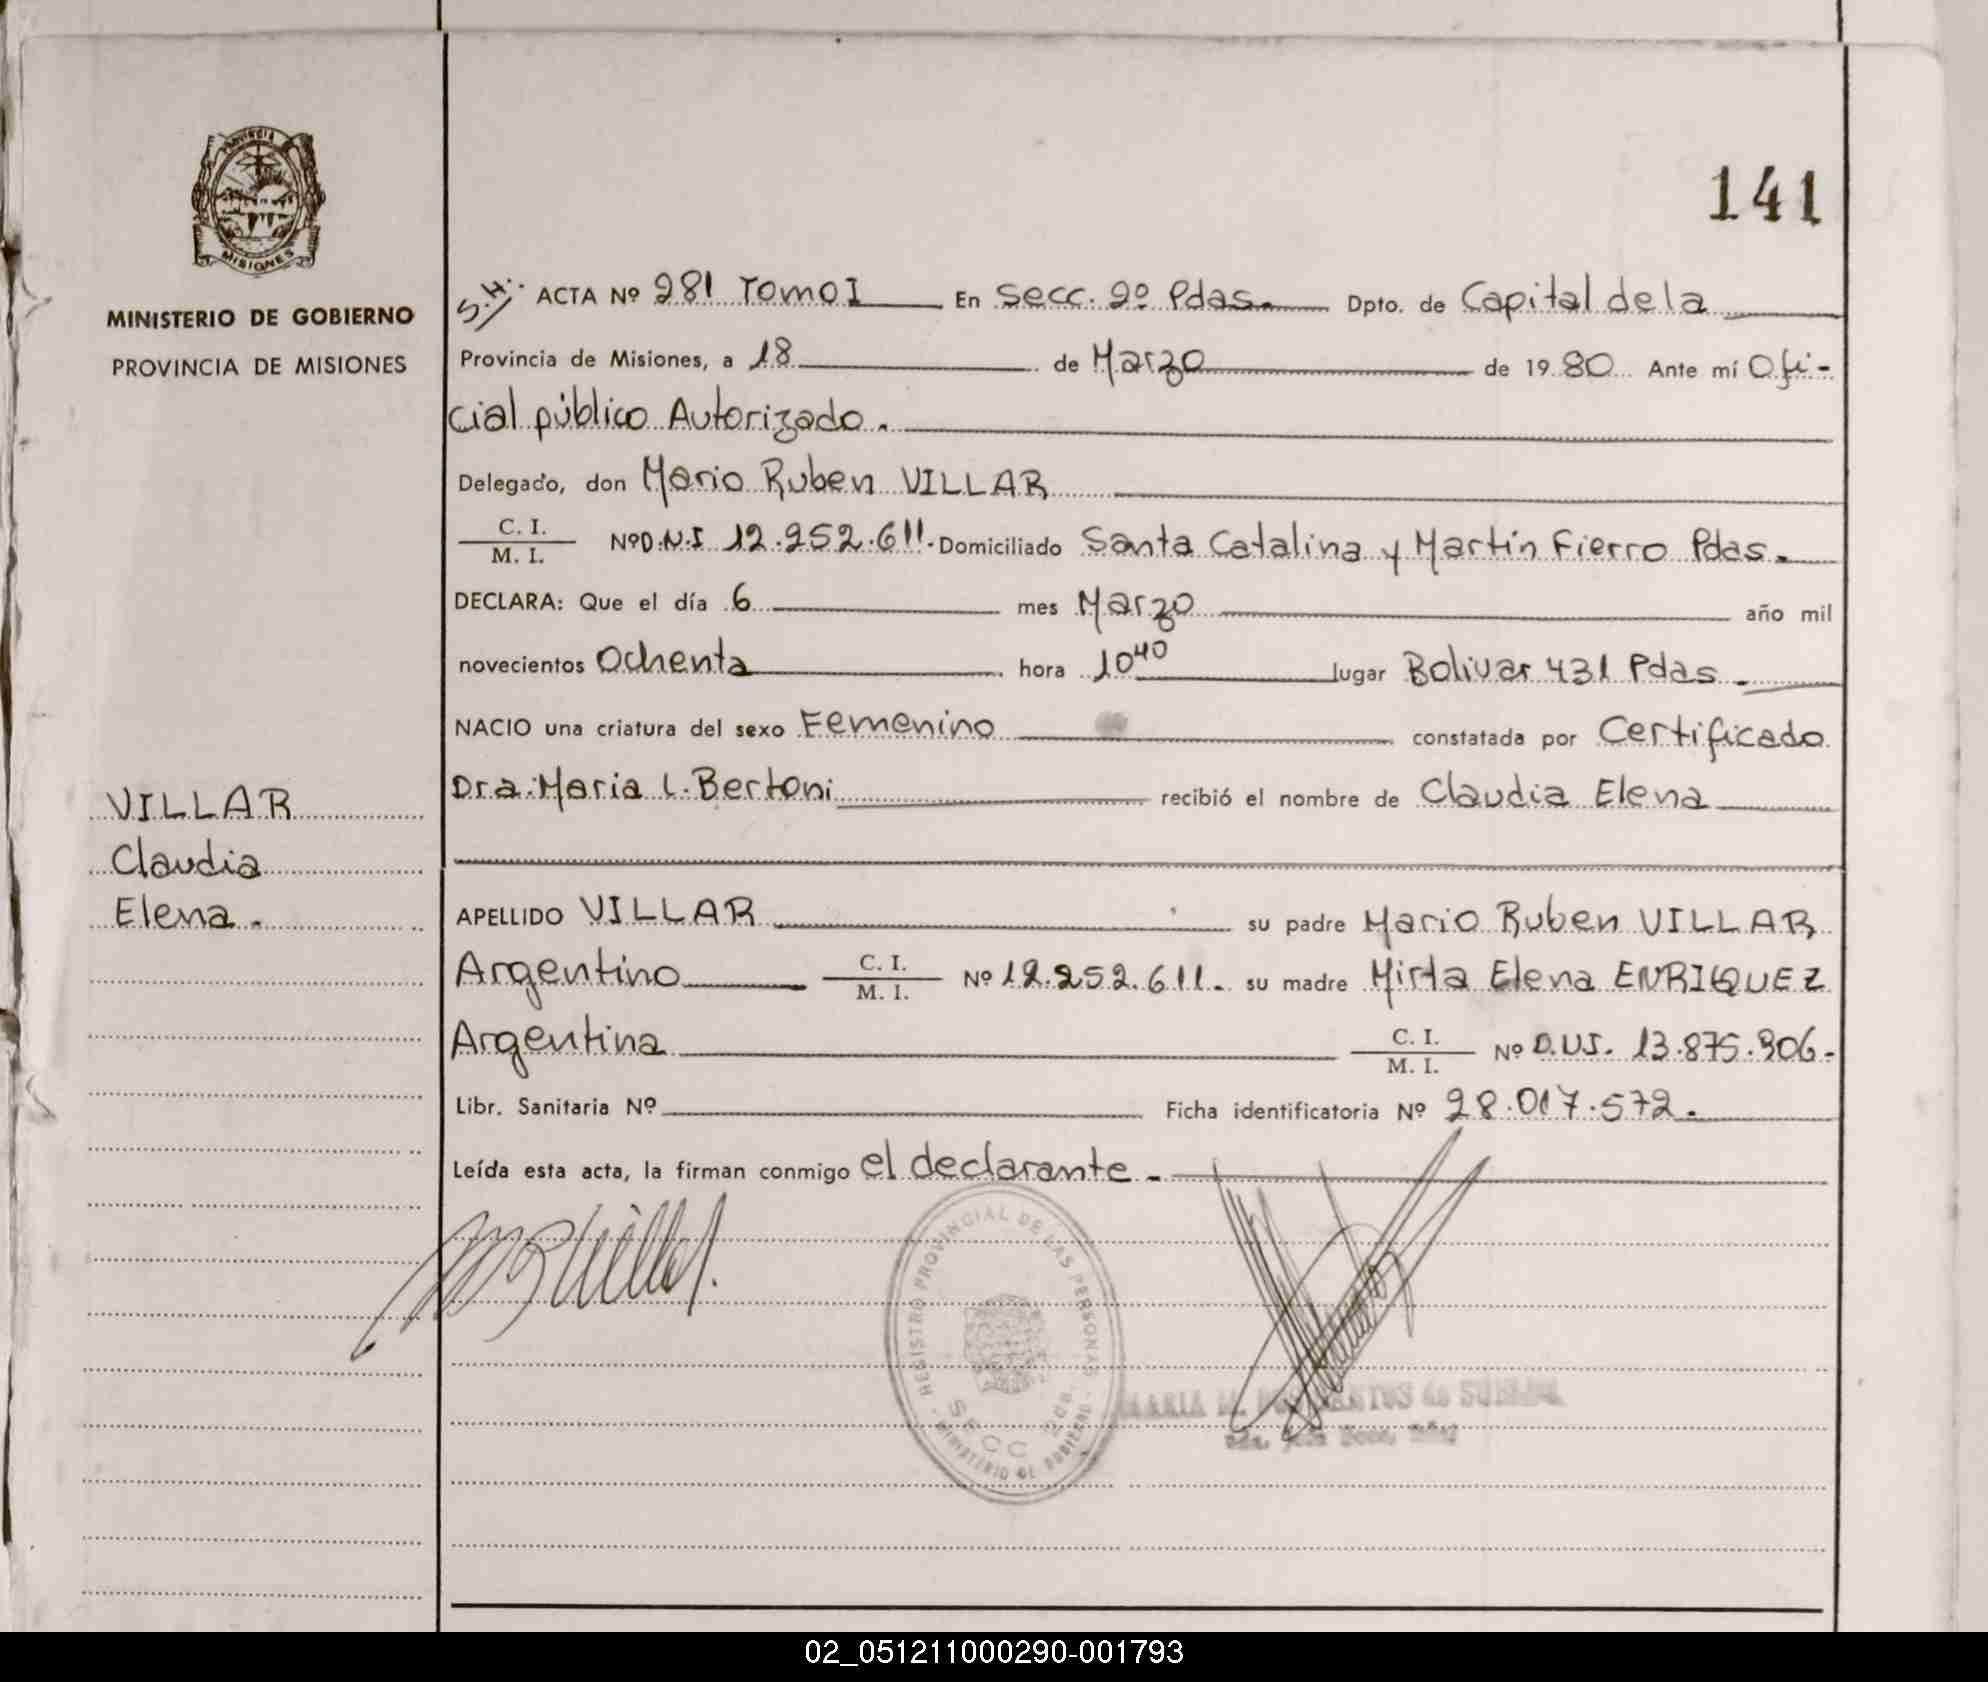 PROVINCIA
MISIONES
MINISTERIO DE GOBIERNO
PROVINCIA DE MISIONES
VILLAR
Claudia
Elena.
141
S.H. ACTA Nº 281 Tomo I En Secc. 2º Pdas. Dpto. de Capital de la
Provincia de Misiones, a 18 de Marzo de 1980 Ante mí Ofi-
cial público Autorizado.
Delegado, don Mario Ruben VILLAR
C. I.
M. I. Nº D.N.I 12.252.611. Domiciliado Santa Catalina y Martín Fierro Pdas.
DECLARA: Que el día 6 mes Marzo año mil
novecientos Ochenta hora 10 40 lugar Bolivar 431 Pdas.
NACIO una criatura del sexo Femenino constatada por Certificado
Dra. Maria L. Bertoni recibió el nombre de Claudia Elena
APELLIDO VILLAR su padre Mario Ruben VILLAR
Argentino C. I. M. I. Nº 12.252.611. su madre Mirta Elena ENRIQUEZ
Argentina C. I. M. I. Nº D.N.I. 13.875.906.
Libr. Sanitaria Nº Ficha identificatoria Nº 28.017.572.
Leída esta acta, la firman conmigo el declarante.
REGISTRO PROVINCIAL DE LAS PERSONAS
SECC
MINISTERIO DE GOBIERNO
MARIA
02_051211000290-001793